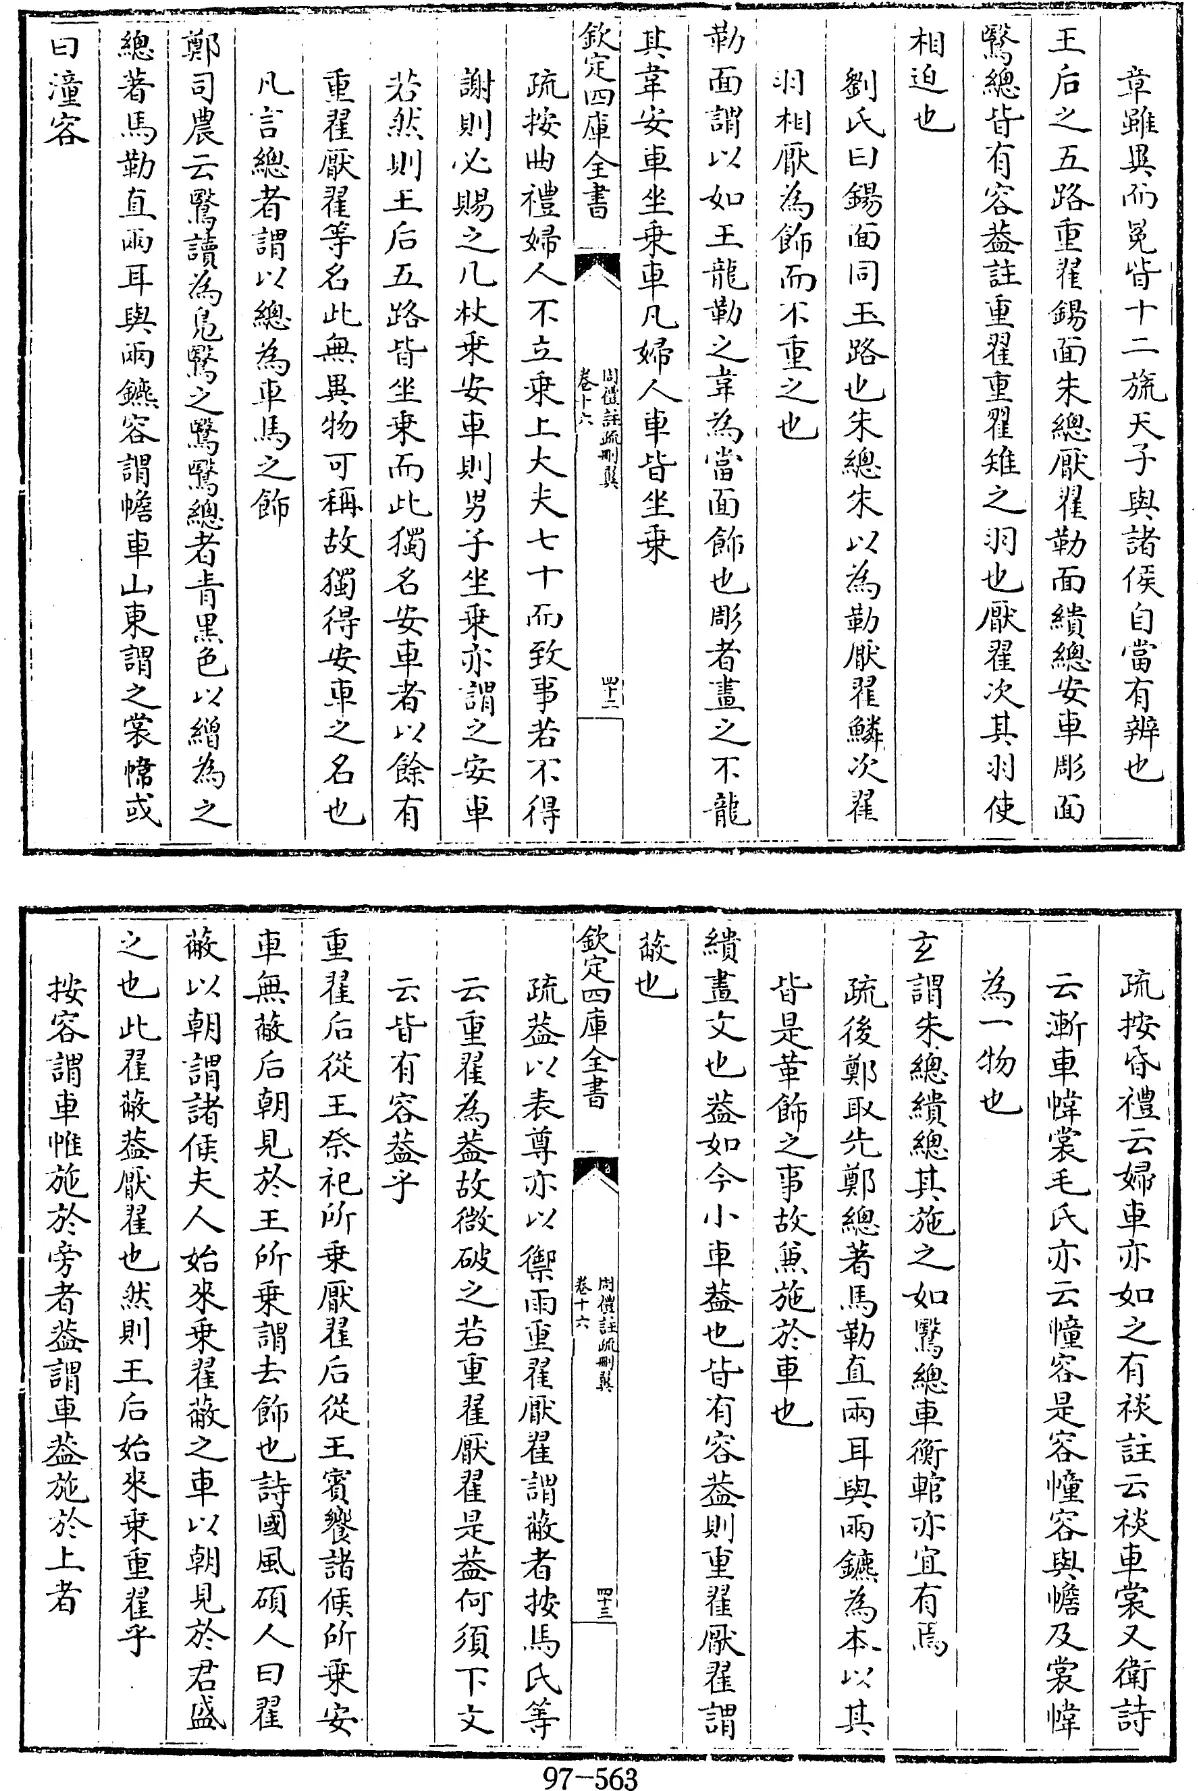 章雖異而冕皆十二旒天子與諸侯自當有辨也
王后之五路重翟鍚面朱總厭翟勒面繢總安車彫面
鷖總皆有容葢註重翟重翟雉之羽也厭翟次其羽使
相迫也
劉氏曰鍚面同玉路也朱總朱以為勒厭翟鱗次翟
羽相厭為飾而不重之也
勒面謂以如王龍勒之韋為當面飾也彫者畫之不龍
其韋安車坐乗車凡婦人車皆坐乗
欽定四庫全書
周禮註疏刪翼
卷十六
四十二
疏按曲禮婦人不立乗上大夫七十而致事若不得
謝則必賜之几杖乗安車則男子坐乗亦謂之安車
若然則王后五路皆坐乗而此獨名安車者以餘有
重翟厭翟等名此無異物可稱故獨得安車之名也
凡言總者謂以總為車馬之飾
鄭司農云鷖讀為鳬鷖之鷖鷖總者青黑色以繒為之
總著馬勒直兩耳與兩鑣容謂幨車山東謂之裳幃或
曰潼容
疏按昏禮云婦車亦如之有裧註云裧車裳又衛詩
云漸車幃裳毛氏亦云幢容是容幢容與幨及裳幃
為一物也
玄謂朱總繢總其施之如鷖總車衡輨亦宜有焉
疏後鄭取先鄭總著馬勒直兩耳與兩鑣為本以其
皆是革飾之事故兼施於車也
繢畫文也葢如今小車葢也皆有容葢則重翟厭翟謂
蔽也
欽定四庫全書
周禮註疏刪翼
卷十六
四十三
疏葢以表尊亦以禦雨重翟厭翟謂蔽者按馬氏等
云重翟為葢故微破之若重翟厭翟是葢何須下文
云皆有容葢乎
重翟后從王祭祀所乗厭翟后從王賓饗諸侯所乗安
車無蔽后朝見於王所乗謂去飾也詩國風碩人曰翟
蔽以朝謂諸侯夫人始來乗翟蔽之車以朝見於君盛
之也此翟蔽葢厭翟也然則王后始來乗重翟乎
按容謂車帷施於旁者葢謂車葢施於上者
97-563